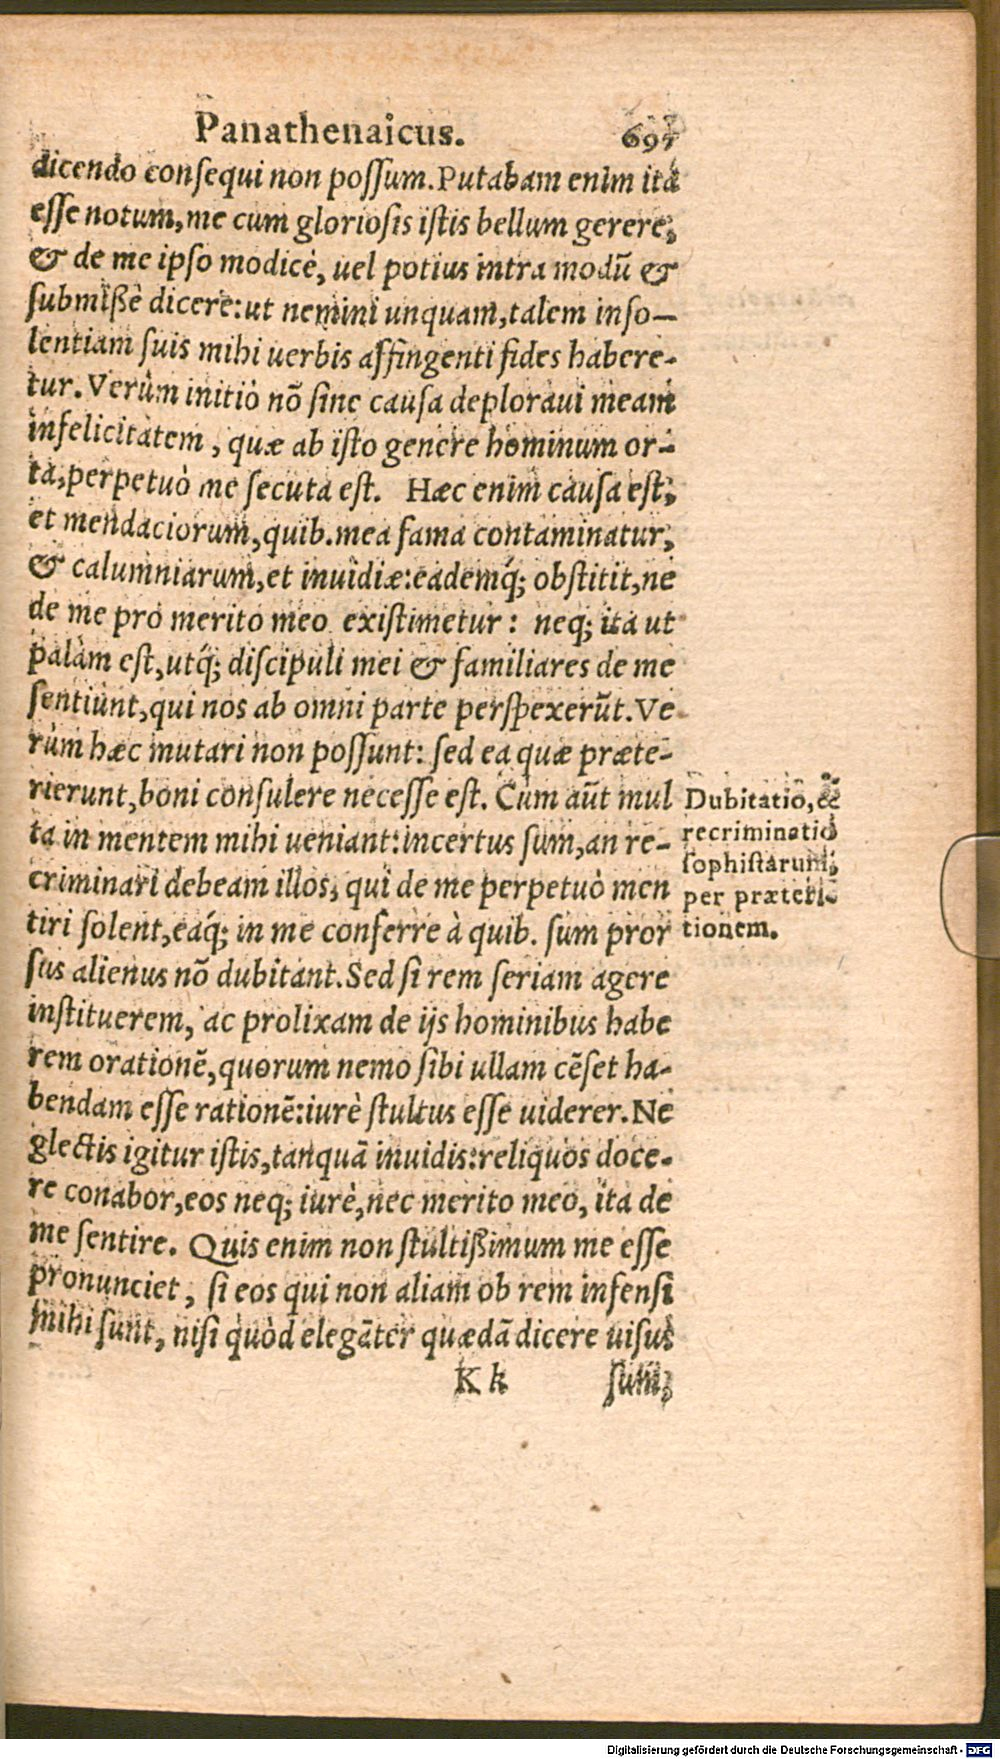 Panathenaicus. 697
dicendo conſequi non poſſum. Putabam enim ita
eſſe notum, me cum glorioſis iſtis bellum gerere,
& de me ipſo modicè, uel potius intra modũ &
ſubmißè dicere: ut nemini unquam, talem inſo—
lentiam ſuis mihi uerbis affingenti fides habere-
tur. Verùm initiò nõ ſine cauſa deploraui meam
infelicitatem, quæ ab iſto genere hominum or-
ta, perpetuò me ſecuta eſt. Hæc enim cauſa eſt,
et mendaciorum, quib. mea fama contaminatur,
& calumniarum, et inuidiæ: eademq́; obſtitit, ne
de me pro merito meo exiſtimetur: neq; ita ut
palàm eſt, utq́; diſcipuli mei & familiares de me
ſentiunt, qui nos ab omni parte perſpexerũt. Ve
rùm hæc mutari non poſſunt: ſed ea quæ præte-
rierunt, boni conſulere neceſſe eſt. Cùm aũt mul
ta in mentem mihi ueniant: incertus ſum, an re-
criminari debeam illos, qui de me perpetuò men
tiri ſolent, eaq́; in me conferre à quib. ſum pror
ſus alienus nõ dubitant. Sed ſi rem ſeriam agere
inſtituerem, ac prolixam de ijs hominibus habe
rem orationẽ, quorum nemo ſibi ullam cẽſet ha-
bendam eſſe rationẽ: iurè ſtultus eſſe uiderer. Ne
glectis igitur iſtis, tanquã inuidis: reliquos doce-
re conabor, eos neq; iurè, nec merito meo, ita de
me ſentire. Quis enim non ſtultißimum me eſſe
pronunciet, ſi eos qui non aliam ob rem infenſi
mihi ſunt, niſi quòd elegãter quædã dicere uiſus
K k ſum,
Dubitatio, &
recriminatio
ſophiſtarum,
per præteri-
tionem.
Digitalisierung gefördert durch die Deutsche Forschungsgemeinschaft - DFG